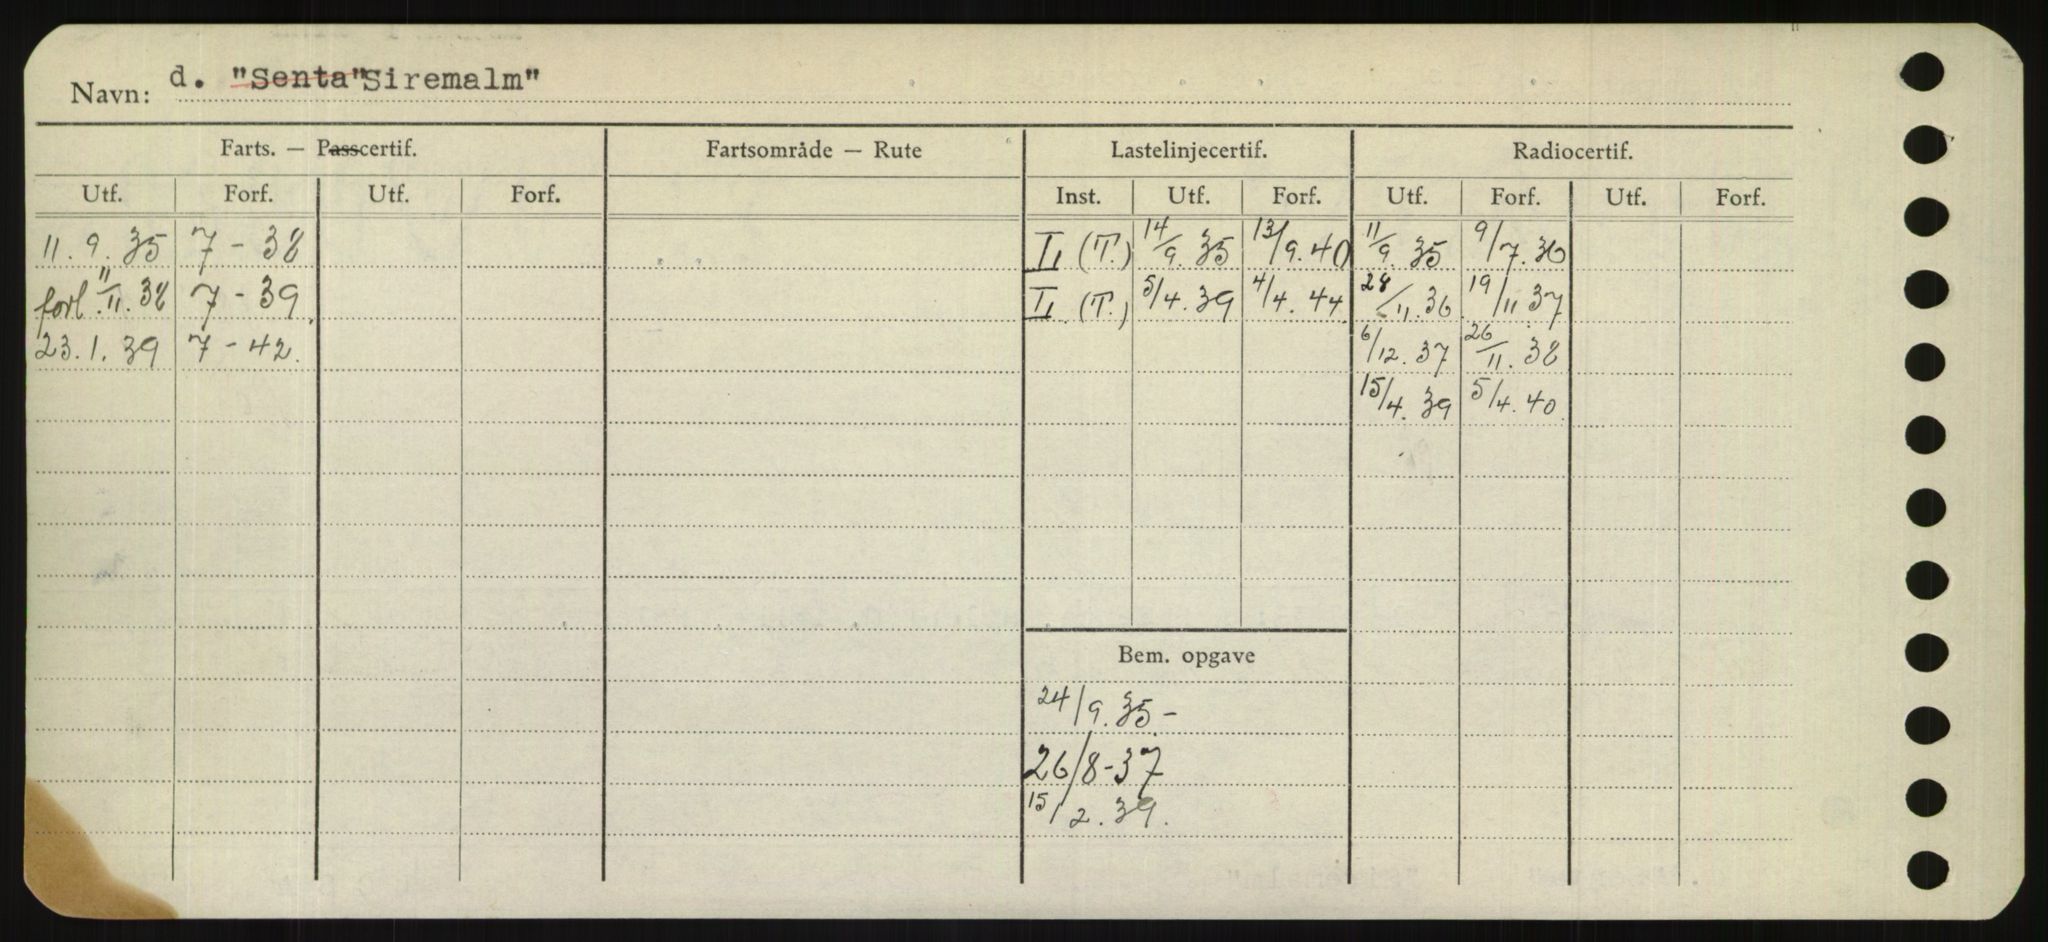 Navn: d. "Senta" Siremalm"
Farts. — Passcertif. Fartsområde — Rute Lastelinjecertif. Radiocertif.
Utf. Forf. Utf. Forf. Inst. Utf. Forf. Utf. Forf. Utf. Forf.
11. 9. 35 7 - 38 II (T.) 14/9. 35 13/9. 40 11/9. 35 9/7. 36
forl. 11/11. 38 7 - 39 II (T.) 5/4. 39 4/4. 44 28/11. 36 19/11 37
23. 1. 39 7 - 42. 6/12. 37 26/11. 38
15/4. 39 5/4. 40
Bem. opgave
24/9. 35 -
26/8-37
15/2. 39.